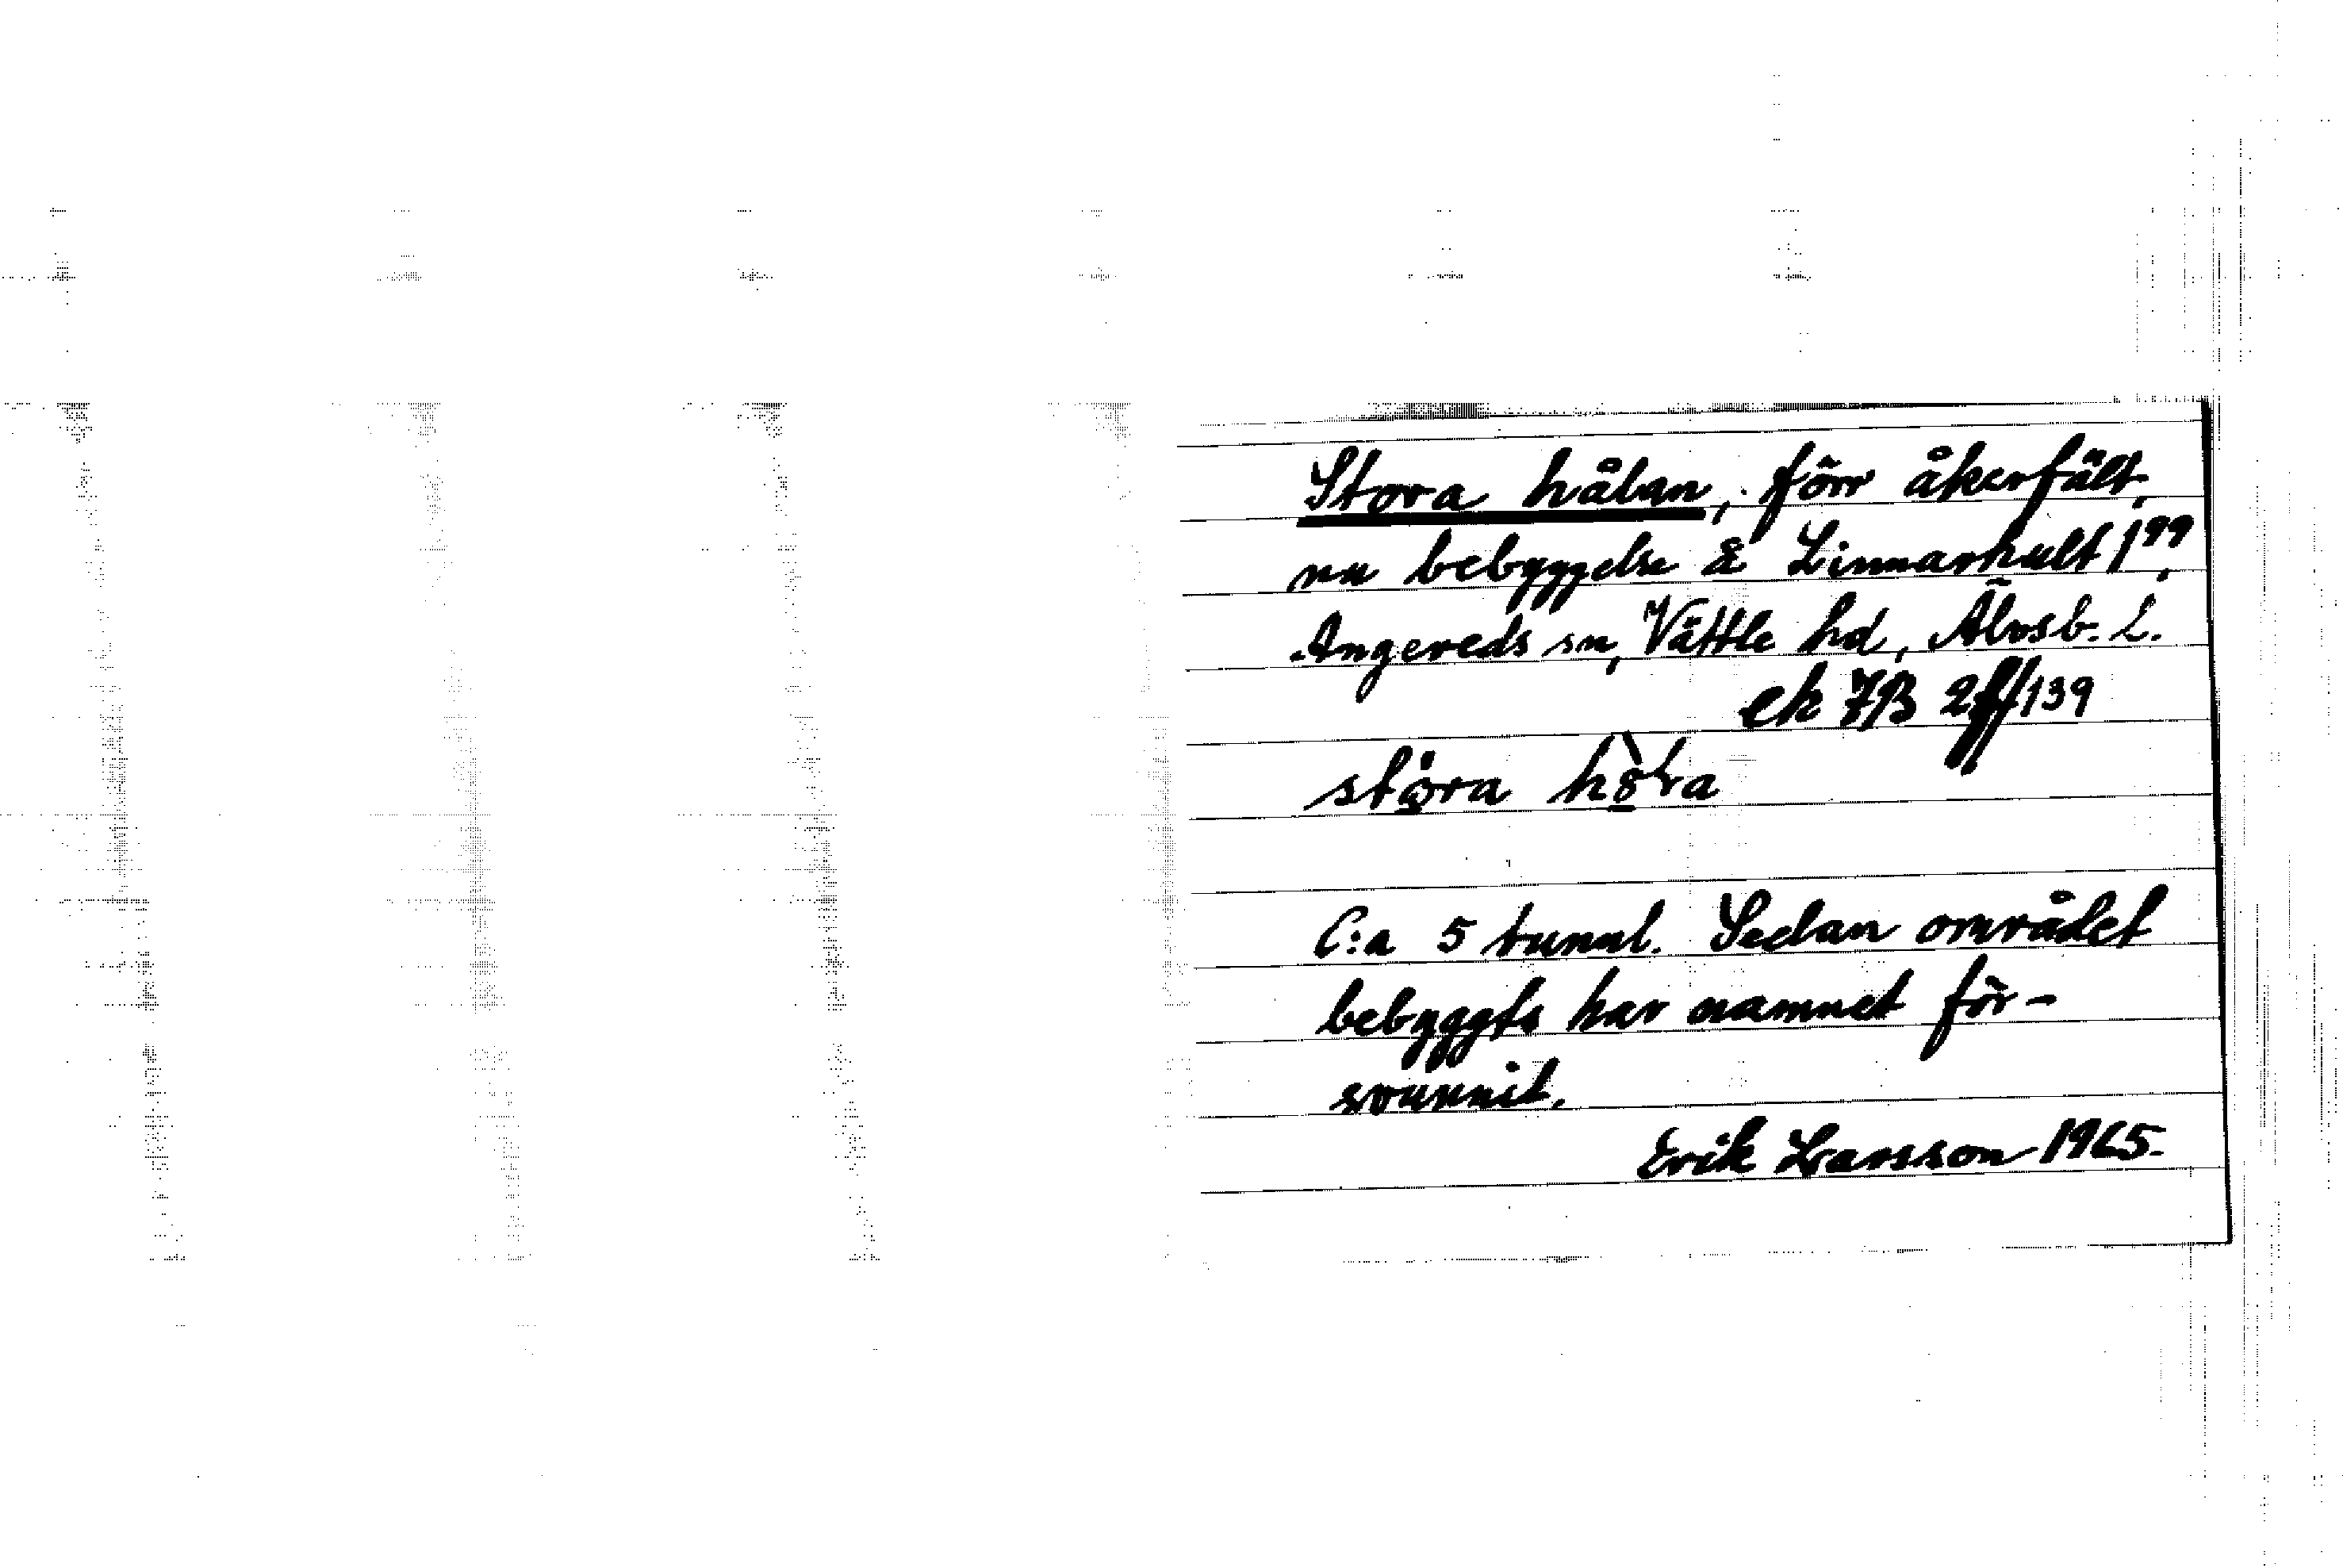 Stora hålan, förr åkerfält,
nu bebyggelse å Linnarhult 1⁹⁹,
Angereds sn, Vättle hd, Älvsb. L.
ek 7B 2ff/139
C:a 5 tunnl. Sedan området
bebyggts har namnet för-
svunnit.
Erik Larsson 1965.